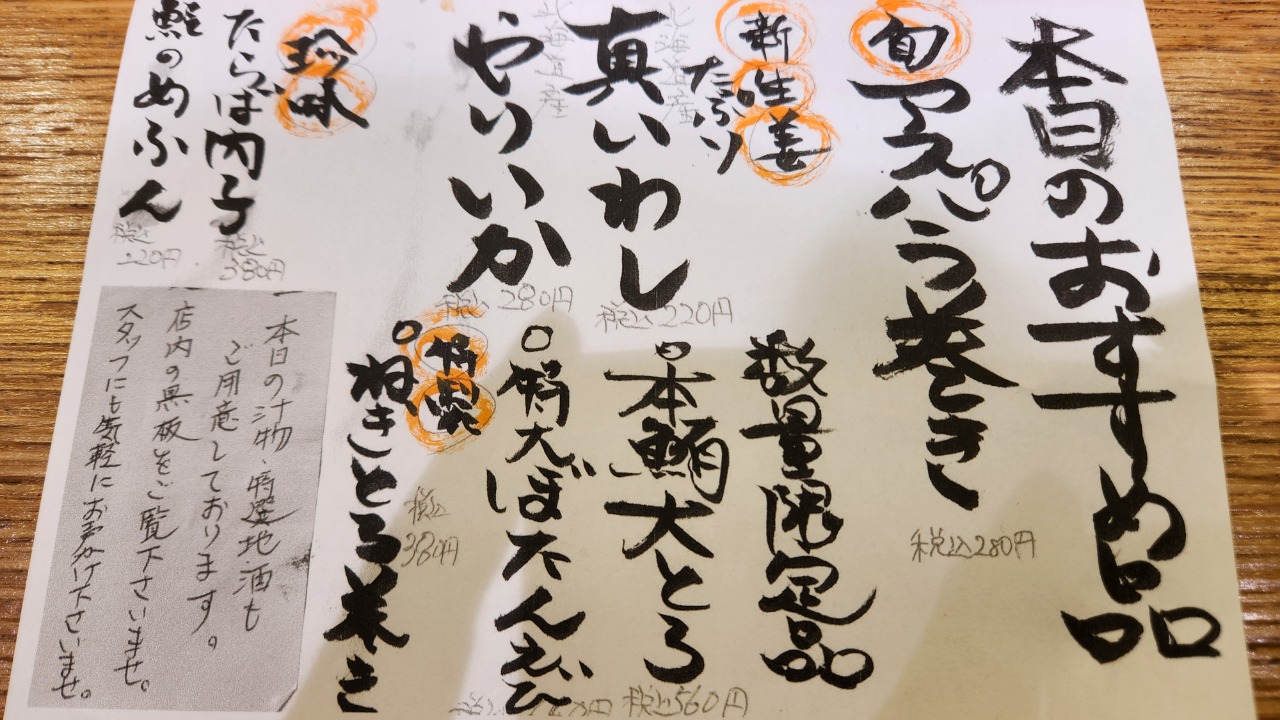 本日のおすすめ品
旬
アスパラ巻き
税込280円
新生姜
たっぷり
北海道産
真いわし
税込220円
北海道産
やりいか
税込280円
珍味
たらば内子
税込380円
鮭のめふん
税込
数量限定品
○本鮪大とろ
税込560円
○特大ぼたんえび
特製
○ねぎとろ巻き
税込380円
本日の汁物、特選地酒も
ご用意しております。
店内の黒板をご覧下さいませ。
スタッフにも気軽にお声かけ下さいませ。